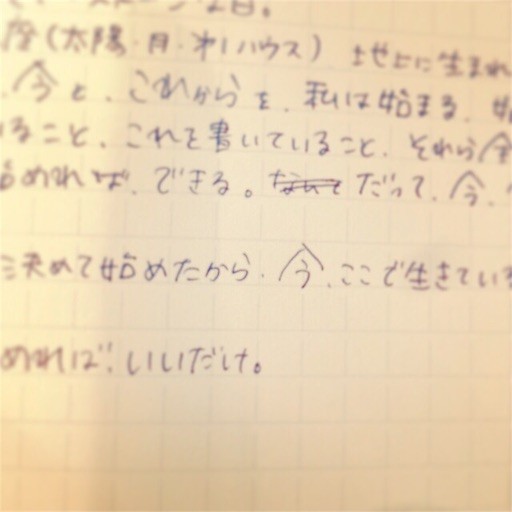 座(太陽・月・オ1ハウス) 地上に生まれ
今と、これからを、私は始まる。始
ること、これを書いていること、それら全
始めれば、できる。だって、今、
決めて始めたから、今、ここで生きている
めれば、いいだけ。